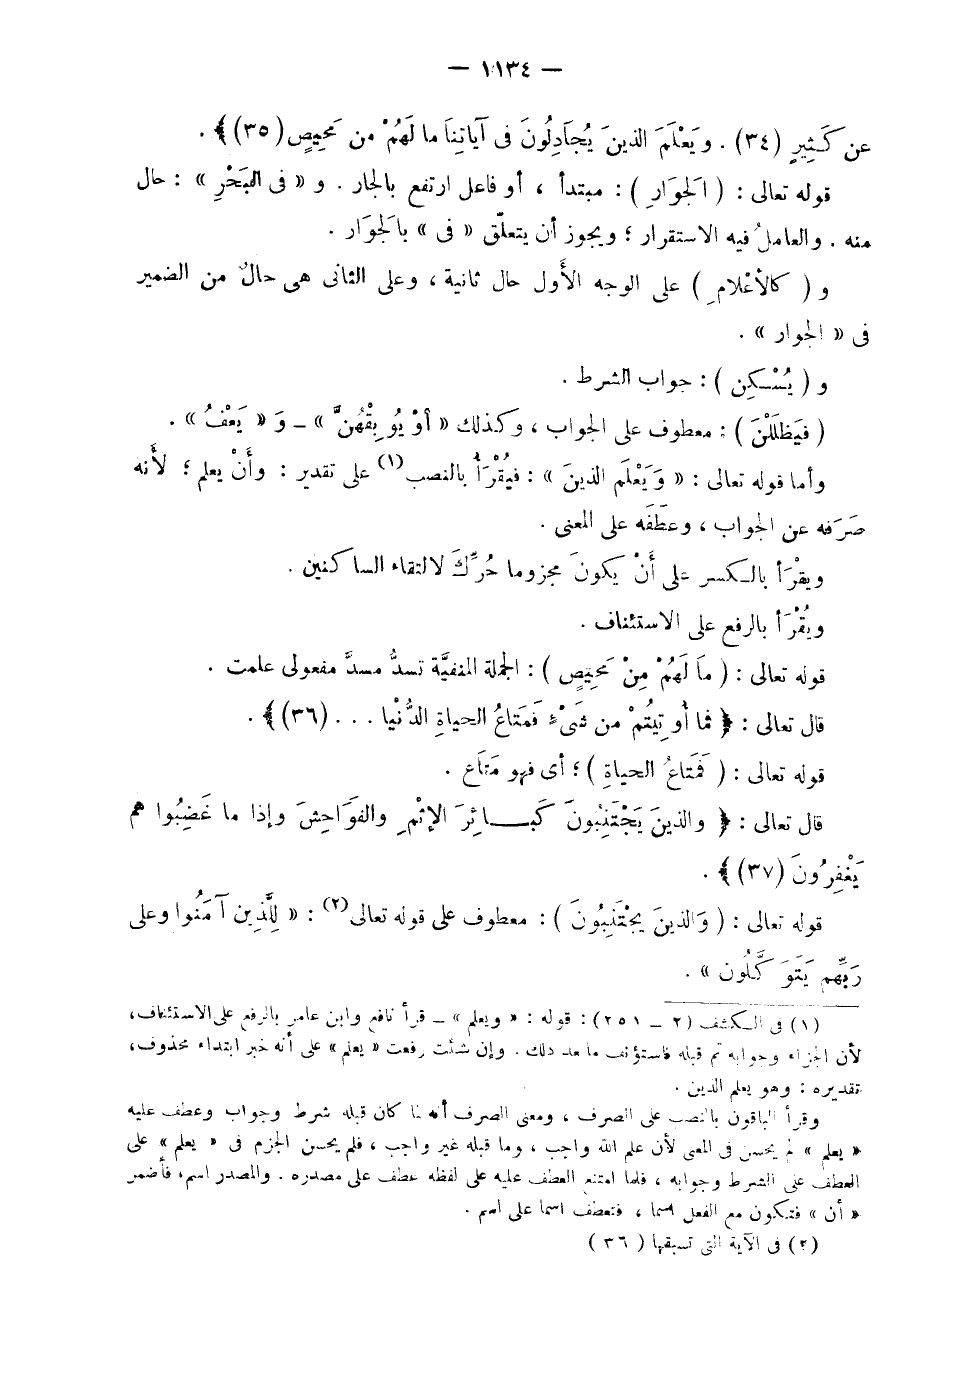 — ١١٣٤ —
عن كَثِيرٍ (٣٤) . ويَعْلَمَ الذينَ يُجَادِلُونَ فى آياتِنَا ما لَهُمْ من مَحِيصٍ (٣٥) ﴾ .
قوله تعالى : ( الجَوَارِ ) : مبتدأ ، أو فاعل ارتفع بالجار . و « فى البَحْرِ » : حال
منه . والعاملُ فيه الاستقرار ؛ ويجوز أن يتعلّق « فى » بالجَوَار .
و ( كالأعْلامِ ) على الوجه الأَول حال ثانية ، وعلى الثانى هى حالٌ من الضمير
فى « الجوار » .
و ( يُسْكِنِ ) : جواب الشرط .
( فيَظْلَلْنَ ) : معطوف على الجواب ، وكذلك « أوْ يُوبِقْهُنَّ » – وَ « يَعْفُ » .
وأما قوله تعالى : « وَيَعْلَم الذينَ » : فيُقْرَأُ بالنصب(١) على تقدير : وأَنْ يعلم ؛ لأَنه
صَرَفه عن الجواب ، وعطَفَه على المعنى .
ويقْرَأ بالكسر على أَنْ يكونَ مجزوما حُرِّكَ لالتقاء الساكنين .
ويُقْرَأ بالرفع على الاستئناف .
قوله تعالى : ( مَا لَهُمْ مِنْ مَحِيَصٍ ) : الجملة المنفيَّة تسدُّ مسدَّ مفعولى علمت .
قال تعالى : ﴿ فما أُوتِيتُمْ من شَىْءٍ فَمَتاعُ الحياةِ الدُّنْيا . . . (٣٦) ﴾ .
قوله تعالى : ( فَمَتَاعُ الحياةِ ) ؛ أى فهو مَتَاع .
قال تعالى : ﴿ والذينَ يَجْتَنِبُونَ كَبَائِرَ الإثْمِ والفَوَاحِشَ وإذا ما غَضِبُوا هم
يَغْفِرُونَ (٣٧) ﴾ .
قوله تعالى : ( وَالذينَ يجْتَنِبُونَ ) : معطوف على قوله تعالى(٢) : « لِلَّذِين آمَنُوا وعلى
رَبِّهِم يَتَوَكَّلُون » .
(١) فى الكشف (٢ – ٢٥١) : قوله : « ويعلم » – قرأ نافع وابن عامر بالرفع على الاستئناف ،
لأن الجزاء وجوابه تم قبله فاستؤنف ما بعد ذلك . وإن شئت رفعت « يعلم » على أنه خبر ابتداء محذوف ،
تقديره : وهو يعلم الذين .
وقرأ الباقون بالنصب على الصرف ، ومعنى الصرف أنه لما كان قبله شرط وجواب وعطف عليه
« يعلم » لم يحسن فى المعنى لأن علم الله واجب ، وما قبله غير واجب ، فلم يحسن الجزم فى « يعلم » على
العطف على الشرط وجوابه ، فلما امتنع العطف عليه على لفظه عطف على مصدره . والمصدر اسم ، فأضمر
« أن » فتكون مع الفعل اسما ، فتعطف اسما على اسم .
(٢) فى الآية التى تسبقها ( ٣٦ )